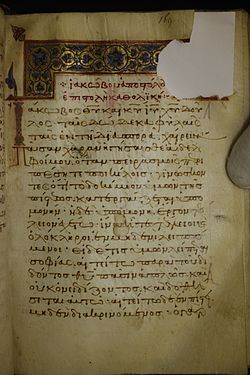 169
ἰακώβου ἀποστόλου
ἐπιστολὴ καθολικὴ
ἰάκωβος θυ καὶ κυ ιυ χυ δοῦ
λος ταῖς δώδεκα φυλαῖς
ταῖς ἐν τῇ διασπορᾷ χαίρειν
πᾶσαν χαρὰν ἡγήσασθε ἀδελ
φοί μου, ὅταν πειρασμοῖς περι
πέσητε ποικίλοις· γινώσκον
τες ὅτι τὸ δοκίμιον ὑμῶν τῆς
πίστεως κατεργάζεται ὑπο
μονήν· ἡ δὲ ὑπομονὴ ἔργον τέ
λειον ἐχέτω· ἵνα ἦτε τέλειοι καὶ
ὁλόκληροι ἐν μηδενὶ λειπό
μενοι· εἰ δέ τις ὑμῶν λείπεται
σοφίας, αἰτείτω παρὰ τοῦ δι
δόντος θυ πᾶσιν ἁπλῶς καὶ
οὐκ ὀνειδίζοντος, καὶ δοθή
σεται αὐτῷ· αἰτείτω δὲ ἐν πίστει
μηδὲν διακρινόμενος· ὁ γὰρ